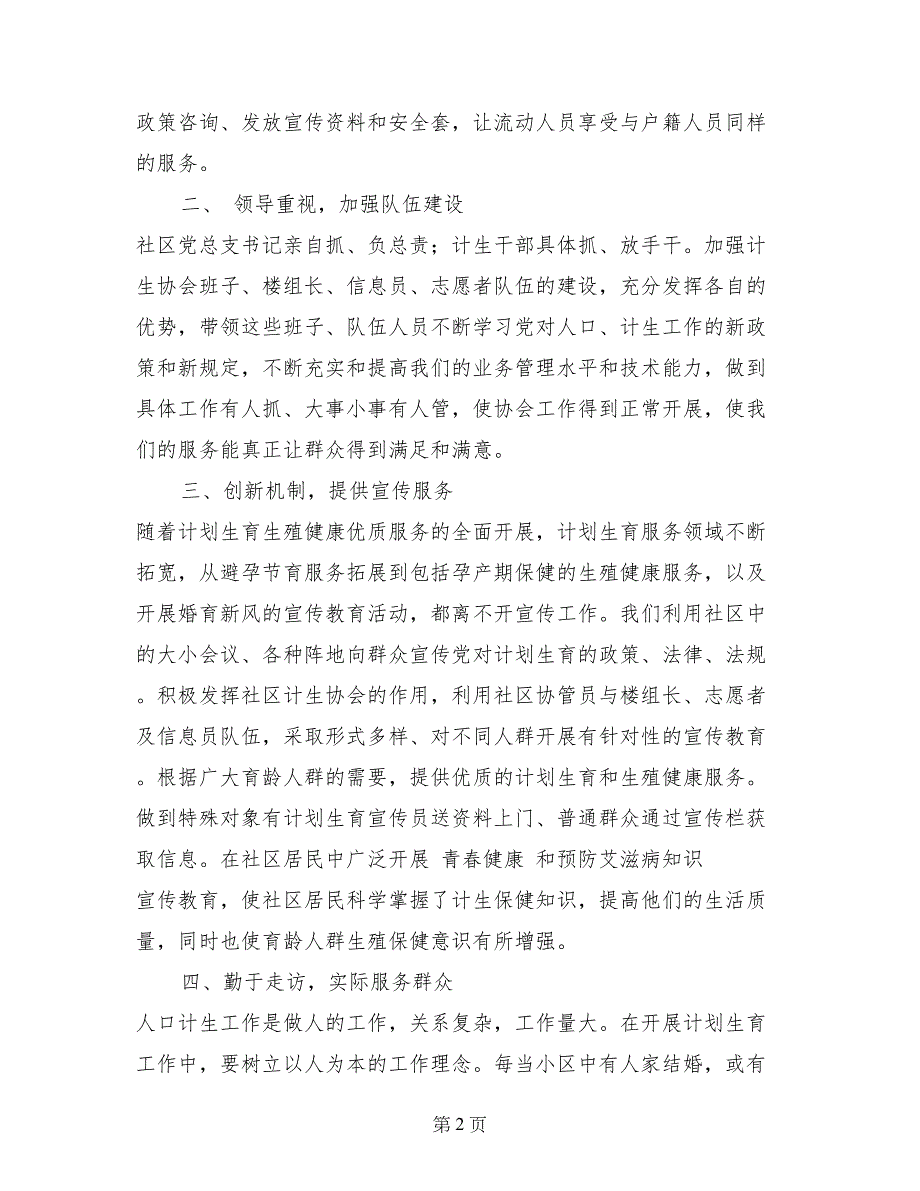 政策咨询、发放宣传资料和安全套，让流动人员享受与户籍人员同样
的服务。
二、 领导重视，加强队伍建设
社区党总支书记亲自抓、负总责；计生干部具体抓、放手干。加强计
生协会班子、楼组长、信息员、志愿者队伍的建设，充分发挥各自的
优势，带领这些班子、队伍人员不断学习党对人口、计生工作的新政
策和新规定，不断充实和提高我们的业务管理水平和技术能力，做到
具体工作有人抓、大事小事有人管，使协会工作得到正常开展，使我
们的服务能真正让群众得到满足和满意。
三、创新机制，提供宣传服务
随着计划生育生殖健康优质服务的全面开展，计划生育服务领域不断
拓宽，从避孕节育服务拓展到包括孕产期保健的生殖健康服务，以及
开展婚育新风的宣传教育活动，都离不开宣传工作。我们利用社区中
的大小会议、各种阵地向群众宣传党对计划生育的政策、法律、法规
。积极发挥社区计生协会的作用，利用社区协管员与楼组长、志愿者
及信息员队伍，采取形式多样、对不同人群开展有针对性的宣传教育
。根据广大育龄人群的需要，提供优质的计划生育和生殖健康服务。
做到特殊对象有计划生育宣传员送资料上门、普通群众通过宣传栏获
取信息。在社区居民中广泛开展 青春健康 和预防艾滋病知识
宣传教育，使社区居民科学掌握了计生保健知识，提高他们的生活质
量，同时也使育龄人群生殖保健意识有所增强。
四、勤于走访，实际服务群众
人口计生工作是做人的工作，关系复杂，工作量大。在开展计划生育
工作中，要树立以人为本的工作理念。每当小区中有人家结婚，或有
第 2 页